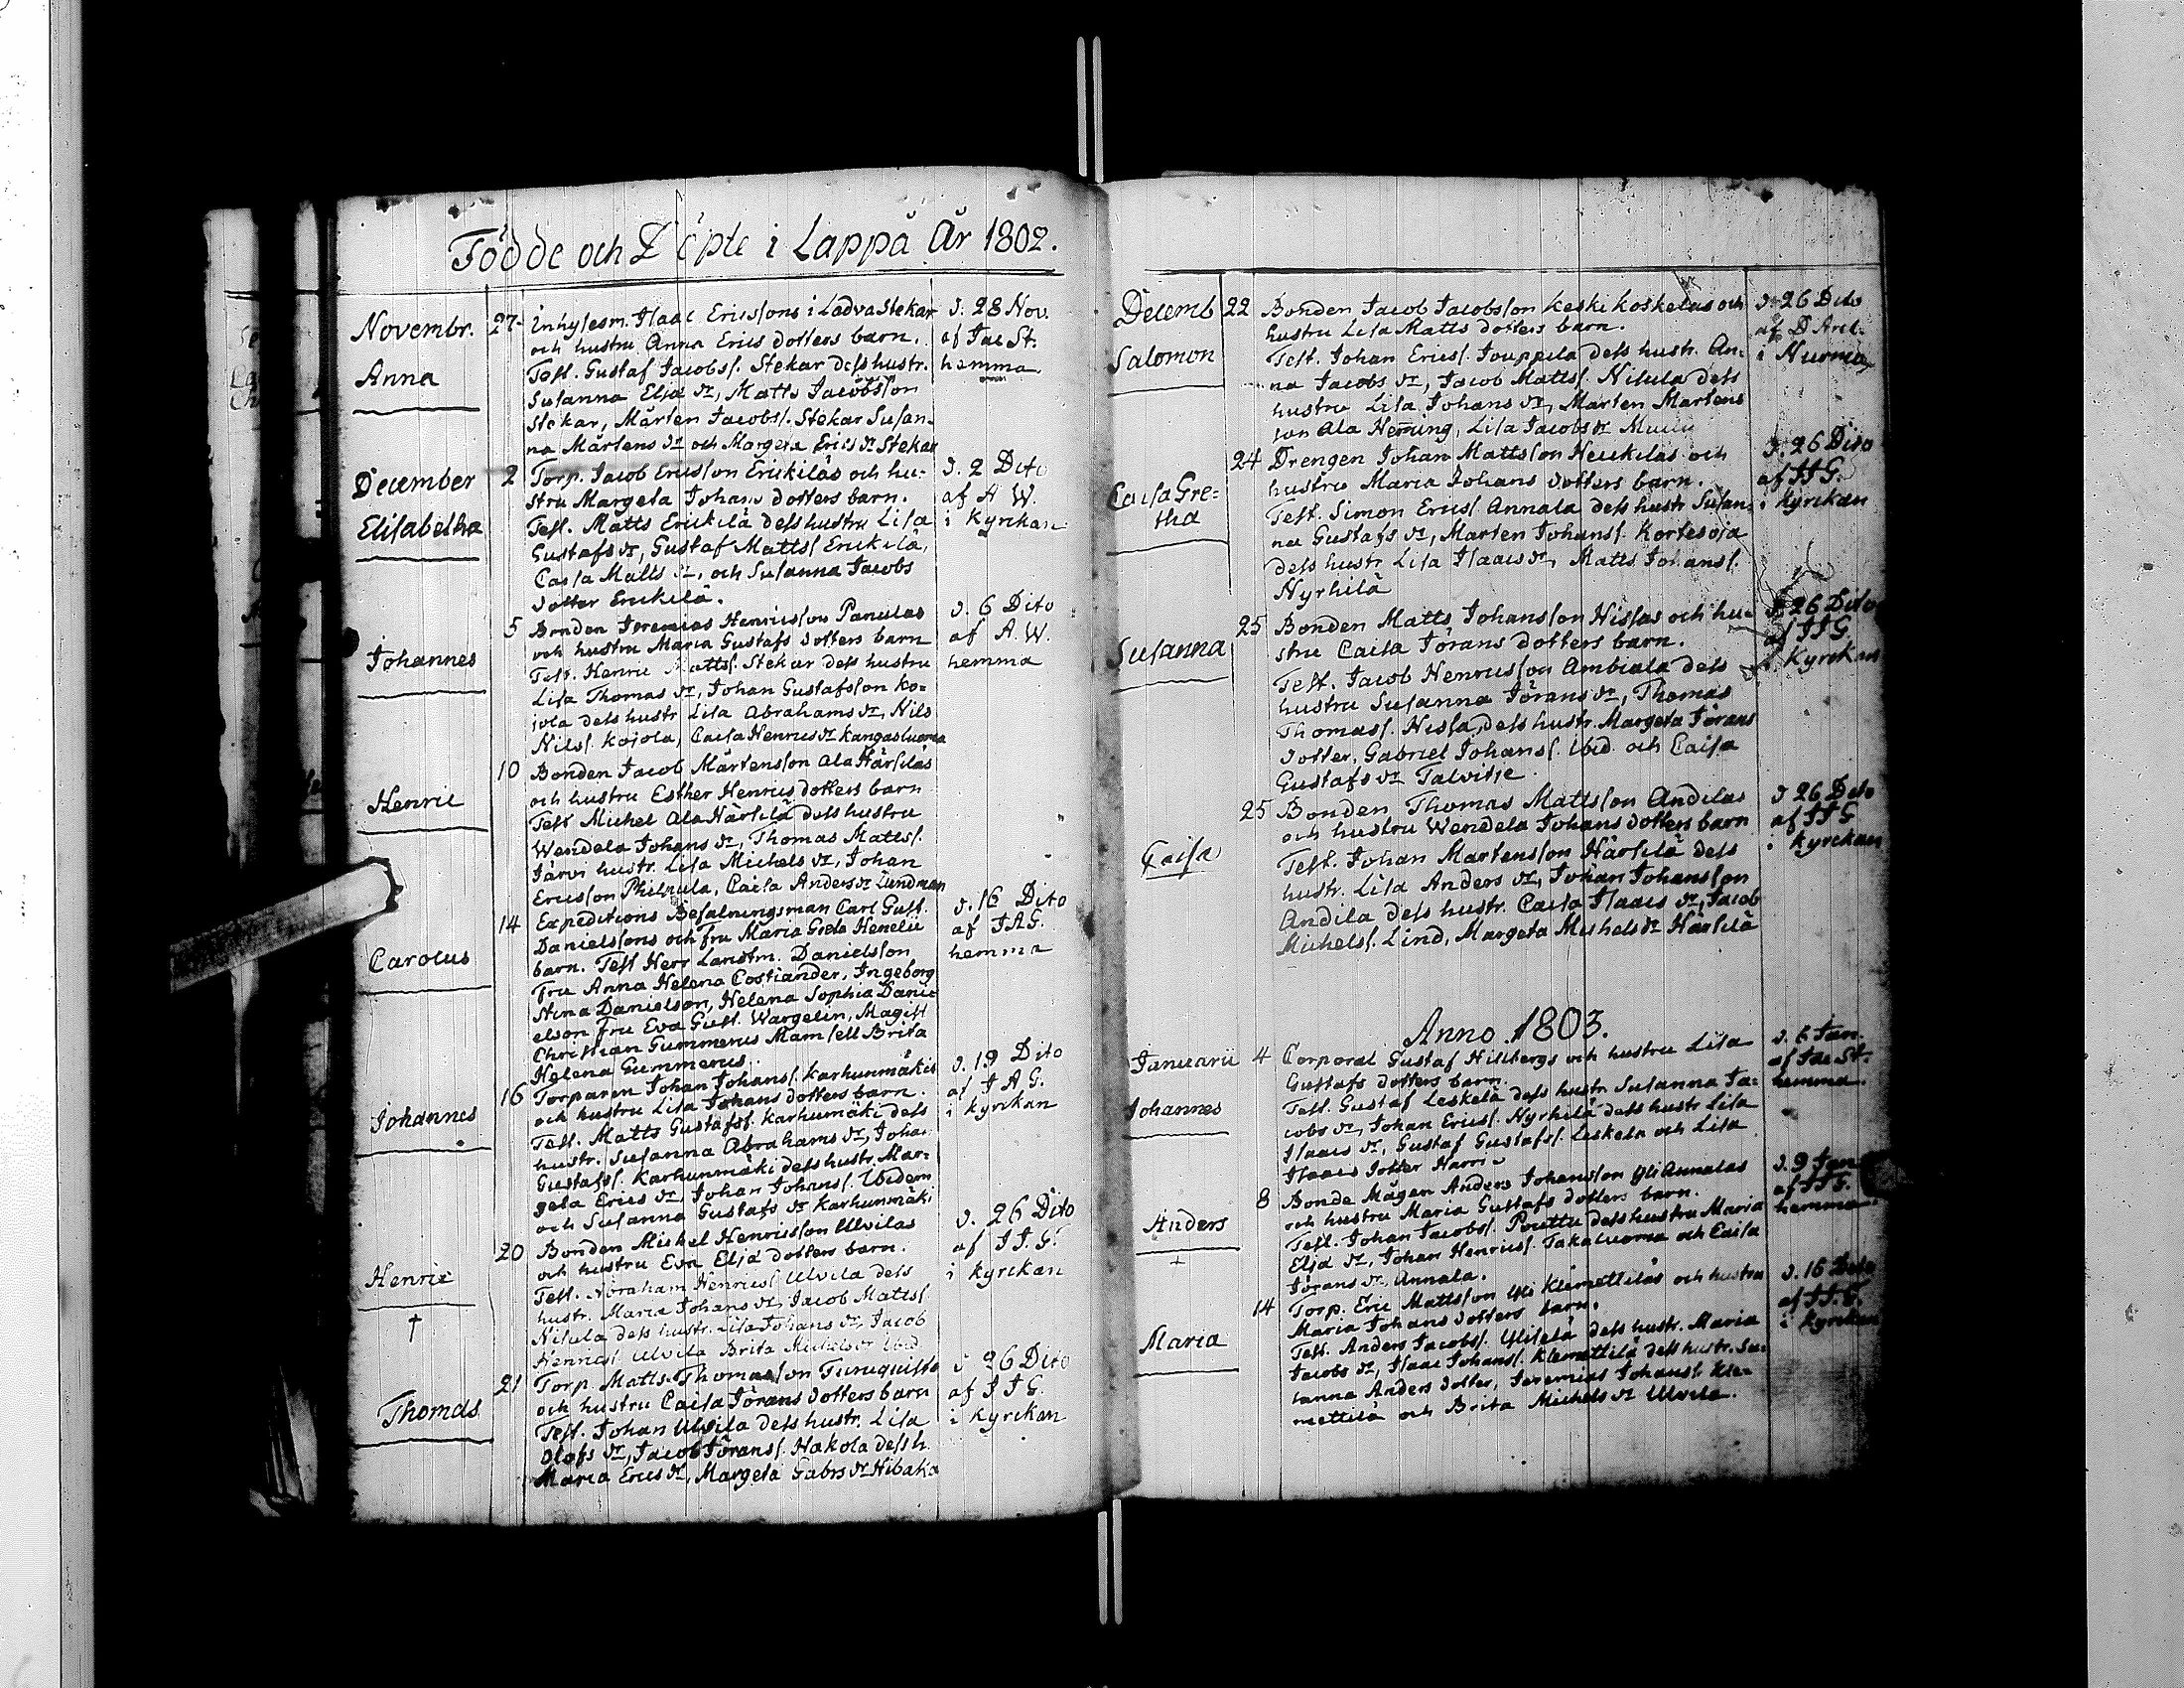 Födde och Döpte i Lappå År 1802.
Novembr. 27. Inhysesm. Isaac Ericssons i Ladva Stekar d. 28 Nov.
och hustru Anna Erics dotters barn. af Jac St.
Anna Test. Gustaf Jacobss. Stekar dess hustr. hemma
Susanna Eljæ dr, Matts Jacobsson
Stekar, Mårten Jacobss. Stekar Susan-
na Mårtens dr och Margeta Erics dr Stekar
December 2 Torp. Jacob Ericsson Erickiläs och hu- d. 2 Dito
stru Margeta Johans dotters barn. af A W.
Elisabetha Test. Matts Erickilä dess hustru Lisa i Kyrckan
Gustafs dr, Gustaf Mattss Erickilä,
Caisa Matts dr, och Susanna Jacobs
dotter Erickilä.
5 Bonden Jeremias Henricsson Panulas d. 6 Dito
och hustru Maria Gustafs dotters barn af A. W.
Johannes Test. Henric Mattss. Stekar dess hustru hemma
Lisa Thomas dr, Johan Gustafsson Ko-
jola dess hustr Lisa Abrahams dr, Nils
Nilss. Kojola, Caisa Henrics dr Kangasluoma
10 Bonden Jacob Mårtensson Ala Härsiläs
Henric och hustru Esther Henrics dotters barn
Test Michel Ala Härsilä dess hustru
Wendela Johans dr, Thomas Mattss.
Järvi hustr. Lisa Michels dr, Johan
Ericsson Philpula, Caisa Anders dr Lundman
14 Expeditions Befalningsman Carl Gust. d. 16 Dito
Danielssons och fru Maria Greta Henelii af J A G.
Carolus barn. Test Herr Lanstm. Danielsson hemma
Fru Anna Helena Costiander, Ingeborg
Stina Danielson, Helena Sophia Dani-
elson fru Eva Gust. Wargelin, Magist
Christian Gummerus Mamsell Brita
Helena Gummerus.
16 Torparen Johan Johanss. Karhunmäkis d. 19 Dito
och hustru Lisa Johans dotters barn. af J A G.
Johannes Test. Matts Gustafss. Karhumäki dess i Kyrckan
hustr. Susanna Abrahams dr, Johan
Gustafss. Karhunmäki dess hustr. Mar-
geta Erics dr, Johan Johanss. Ibidem
och Susanna Gustafs dr Karhunmäki
20 Bonden Michel Henricsson Ulvilas d. 26 Dito
och hustru Eva Eljæ dotters barn. af J J. G.
Henric Test. Abraham Henricss Ulvila dess i Kyrckan
hustr. Maria Johans dr, Jacob Mattss.
† Nisula dess hustr. Lisa Johans dr, Jacob
Henricss. Ulvila Brita Michels dr Ibid
21 Torp. Matts Thomasson Turuquists d 26 Dito
och hustru Caisa Jörans dotters barn af J J G.
Thomas Test. Johan Ulvila dess hustr. Lisa i Kyrckan
Olofs dr, Jacob Jöranss. Hakola dess h.
Maria Erics dr, Margeta Gabrs dr Hibaka
Decemb 22 Bonden Jacob Jacobsson Keski Koskelas och d. 26 Dito
hustru Lisa Matts dotters barn. af D Arel.
Salomon Test. Johan Ericss. Jouppila dess hustr. An- i Nurmo
na Jacobs dr, Jacob Mattss. Nisula dess
hustru Lisa Johans dr, Mårten Mårtens
son Ala Heming, Lisa Jacobs dr
24 Drengen Johan Mattsson Heickiläs och d. 26 Dito
hustru Maria Johans dotters barn. af J J G.
Caisa Gre- Test. Simon Ericss. Annala dess hustr Susan- i Kyrckan
tha na Gustafs dr, Mårten Johanss. Kortesoja
dess hustr Lisa Isaacs dr, Matts Johanss.
Nyrhilä
25 Bonden Matts Johansson Nissas och hu- d. 26 Dito
stru Caisa Jörans dotters barn. af J J G.
Susanna Test. Jacob Henricsson Ambiala dess i Kyrckan
hustru Susanna Jörans dr, Thomas
Thomass. Nissa, dess hustr. Margeta Jörans
dotter, Gabriel Johanss. Ibid. och Caisa
Gustafs dr Talvitie.
25 Bonden Thomas Mattsson Andilas d 26 Dito
och hustru Wendela Johans dotters barn af J J G
Caisa Test. Johan Mårtensson Härsilä dess i Kyrckan
hustr. Lisa Anders dr, Johan Johansson
Andila dess hustr. Caisa Isaacs dr, Jacob
Michelss. Lind, Margeta Michels dr Härsilä
Anno 1803.
Januarii 4 Corporal Gustaf Hillbergs och hustru Lisa d. 6 Jan.
Gustafs dotters barn. af Jac St.
Johannes Test. Gustaf Leskelä dess hustr Susanna Ja- hemma.
cobs dr, Johan Ericss. Nyrhilä dess hustr Lisa
Isaacs dr, Gustaf Gustafss. Leskelä och Lisa
Isaacs dotter Harri
8 Bonde Mågen Anders Johansson Yli Annalas d. 9 Jan
och hustru Maria Gustafs dotters barn. af J J G.
Anders Test. Johan Jacobss. Pouttu dess hustru Maria hemma
† Eljæ dr, Johan Henricss. Takaluoma och Caisa
Jörans dr Annala.
14 Torp. Eric Mattsson Yli Klemettiläs och hustru d. 16 Dito
Maria Johans dotters barn. af J J. G.
Maria Test. Anders Jacobss. Ylisilä dess hustr. Maria i Kyrckan
Jacobs dr, Isaac Johanss. Klemettilä dess hustr. Su-
sanna Anders dotter, Jeremias Johanss. Kle-
mettilä och Brita Michels dr Ulvila.